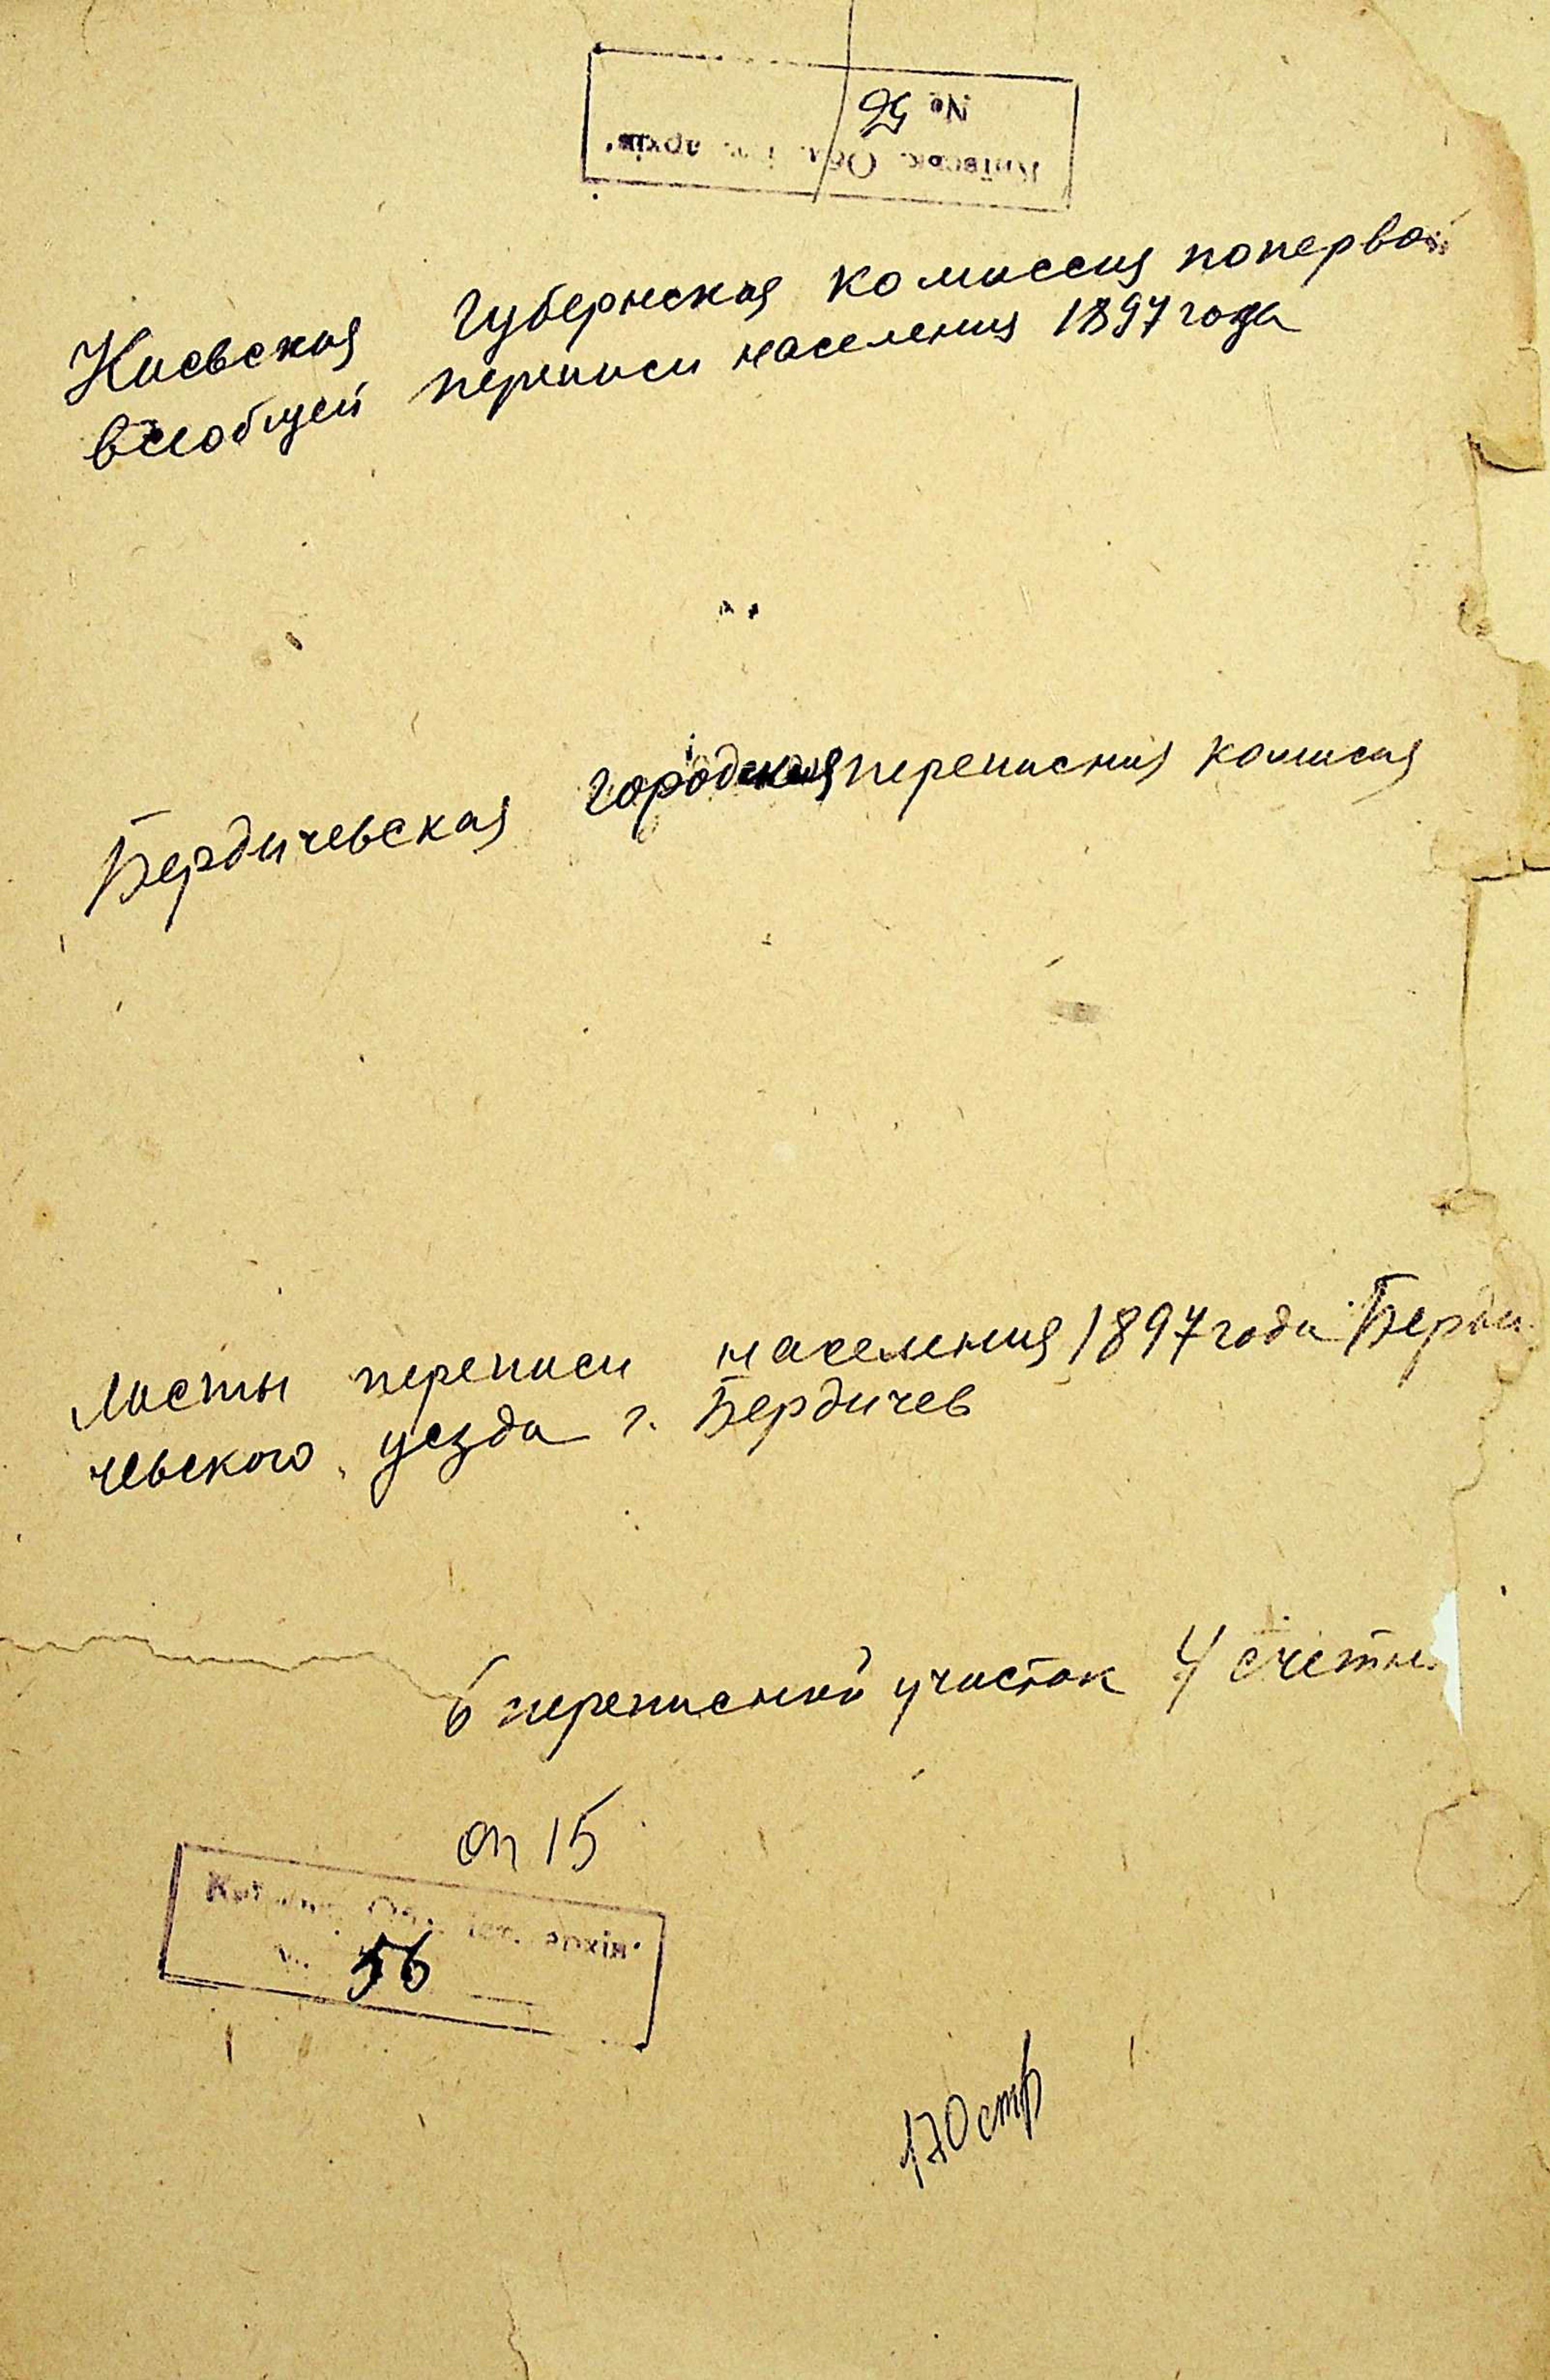 № 56
Київськ. Обл. Іст. архів.
Киевская губернская комиссия по первой
всеобщей переписи населения 1897 года
Бердичевская городская переписная комисия
Листы переписи населения 1897 года Берди
чевского уезда г. Бердичев
6 переписной участок 4 счетн
оп 15
Київськ. Обл. Іст. архів.
56
170 стр